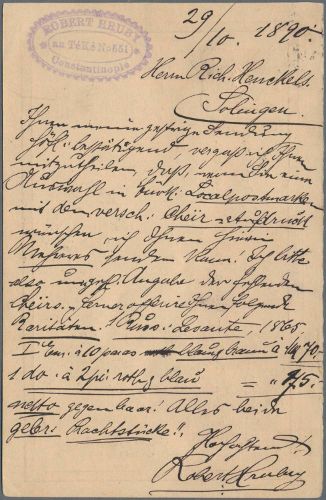 ROBERT HRUBY
Constantinople
29/10. 1890.
Herrn Rich. Henckels.
Solingen.
Ihnen meine gestrige Sendung
höfl. bestätigend, vergaß ich Ihnen
mitzutheilen, daß, wenn Sie eine
Auswahl in türk. Localpostmarken
mit dem versch.
wünschen ich Ihnen hievon
Mehreres senden kann. Ich bitte
also ungef. Angabe der fehlenden
Ferner offerire Ihnen folgende
Raritäten. 1 Russ. Levante. 1865.
à 10 paras blau braun à M 70.-
1 do. à 2 pi. roth blau = " 75.-
netto gegen baar! Alles beide
gebr. Prachtstücke!!
Hochachtend
Robert Hruby